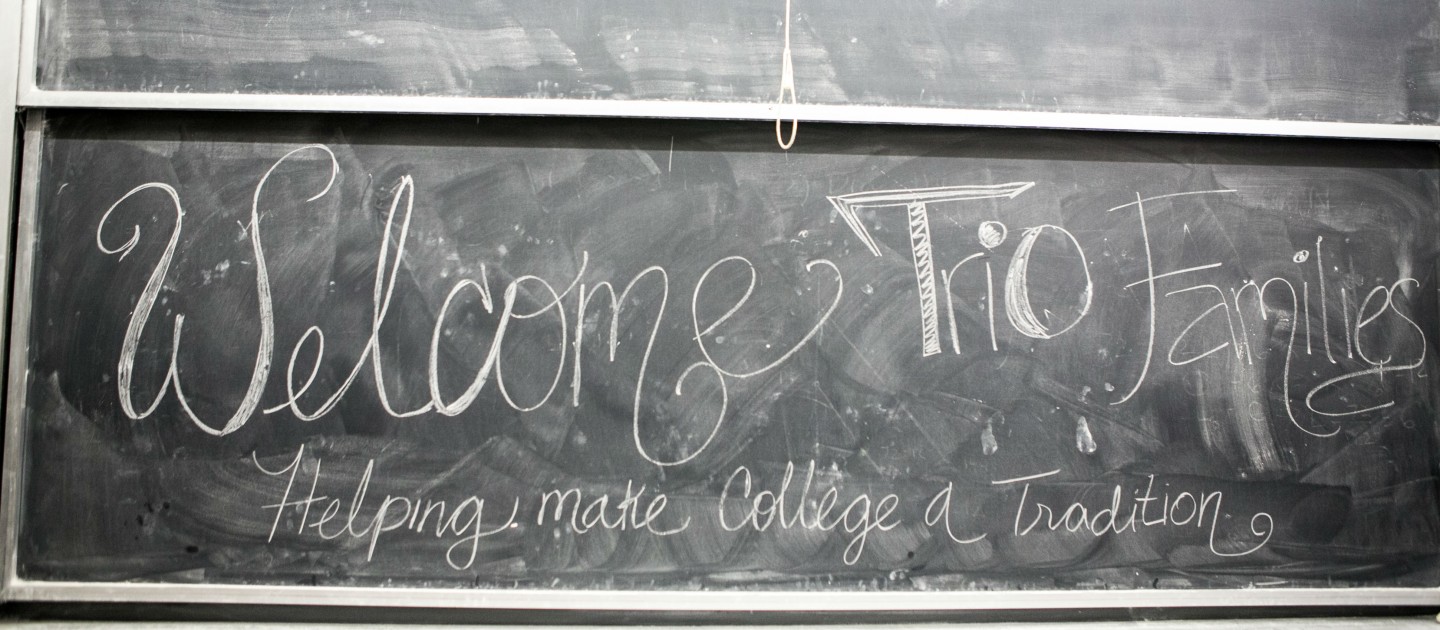 Welcome Trio Families
Helping make College a Tradition